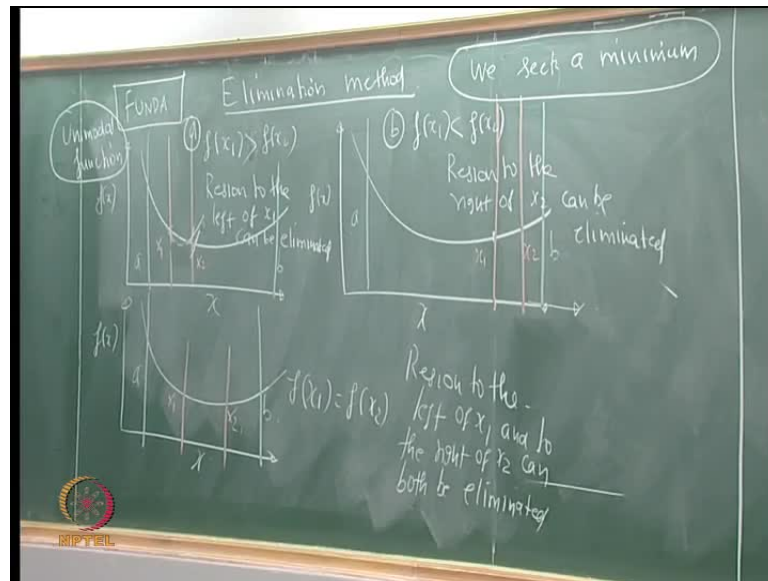 Elimination method
We seek a minimum
FUNDA
Unimodal
function
a
f(x₁) > f(x₂)
Region to the
left of x₁
can be eliminated
f(x)
a
x₁
x₂
b
x
b
f(x₁) < f(x₂)
Region to the
right of x₂ can be
eliminated
f(x)
a
x₁
x₂
b
x
f(x)
a
x₁
x₂
b
x
f(x₁) = f(x₂)
Region to the
left of x₁ and to
the right of x₂ can
both be eliminated
NPTEL